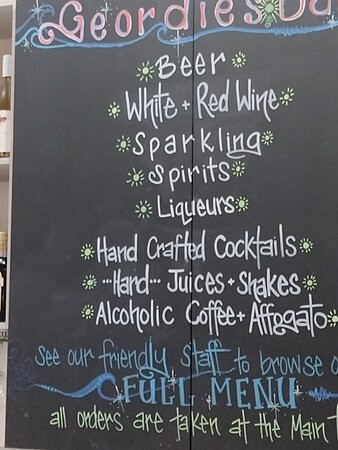 Geordie's
Beer
White + Red Wine
Sparkling
Spirits
Liqueurs
Hand Crafted Cocktails
···Hard··· Juices + Shakes
Alcoholic Coffee + Affogato
See our friendly staff to browse
FULL MENU
all orders are taken at the Main